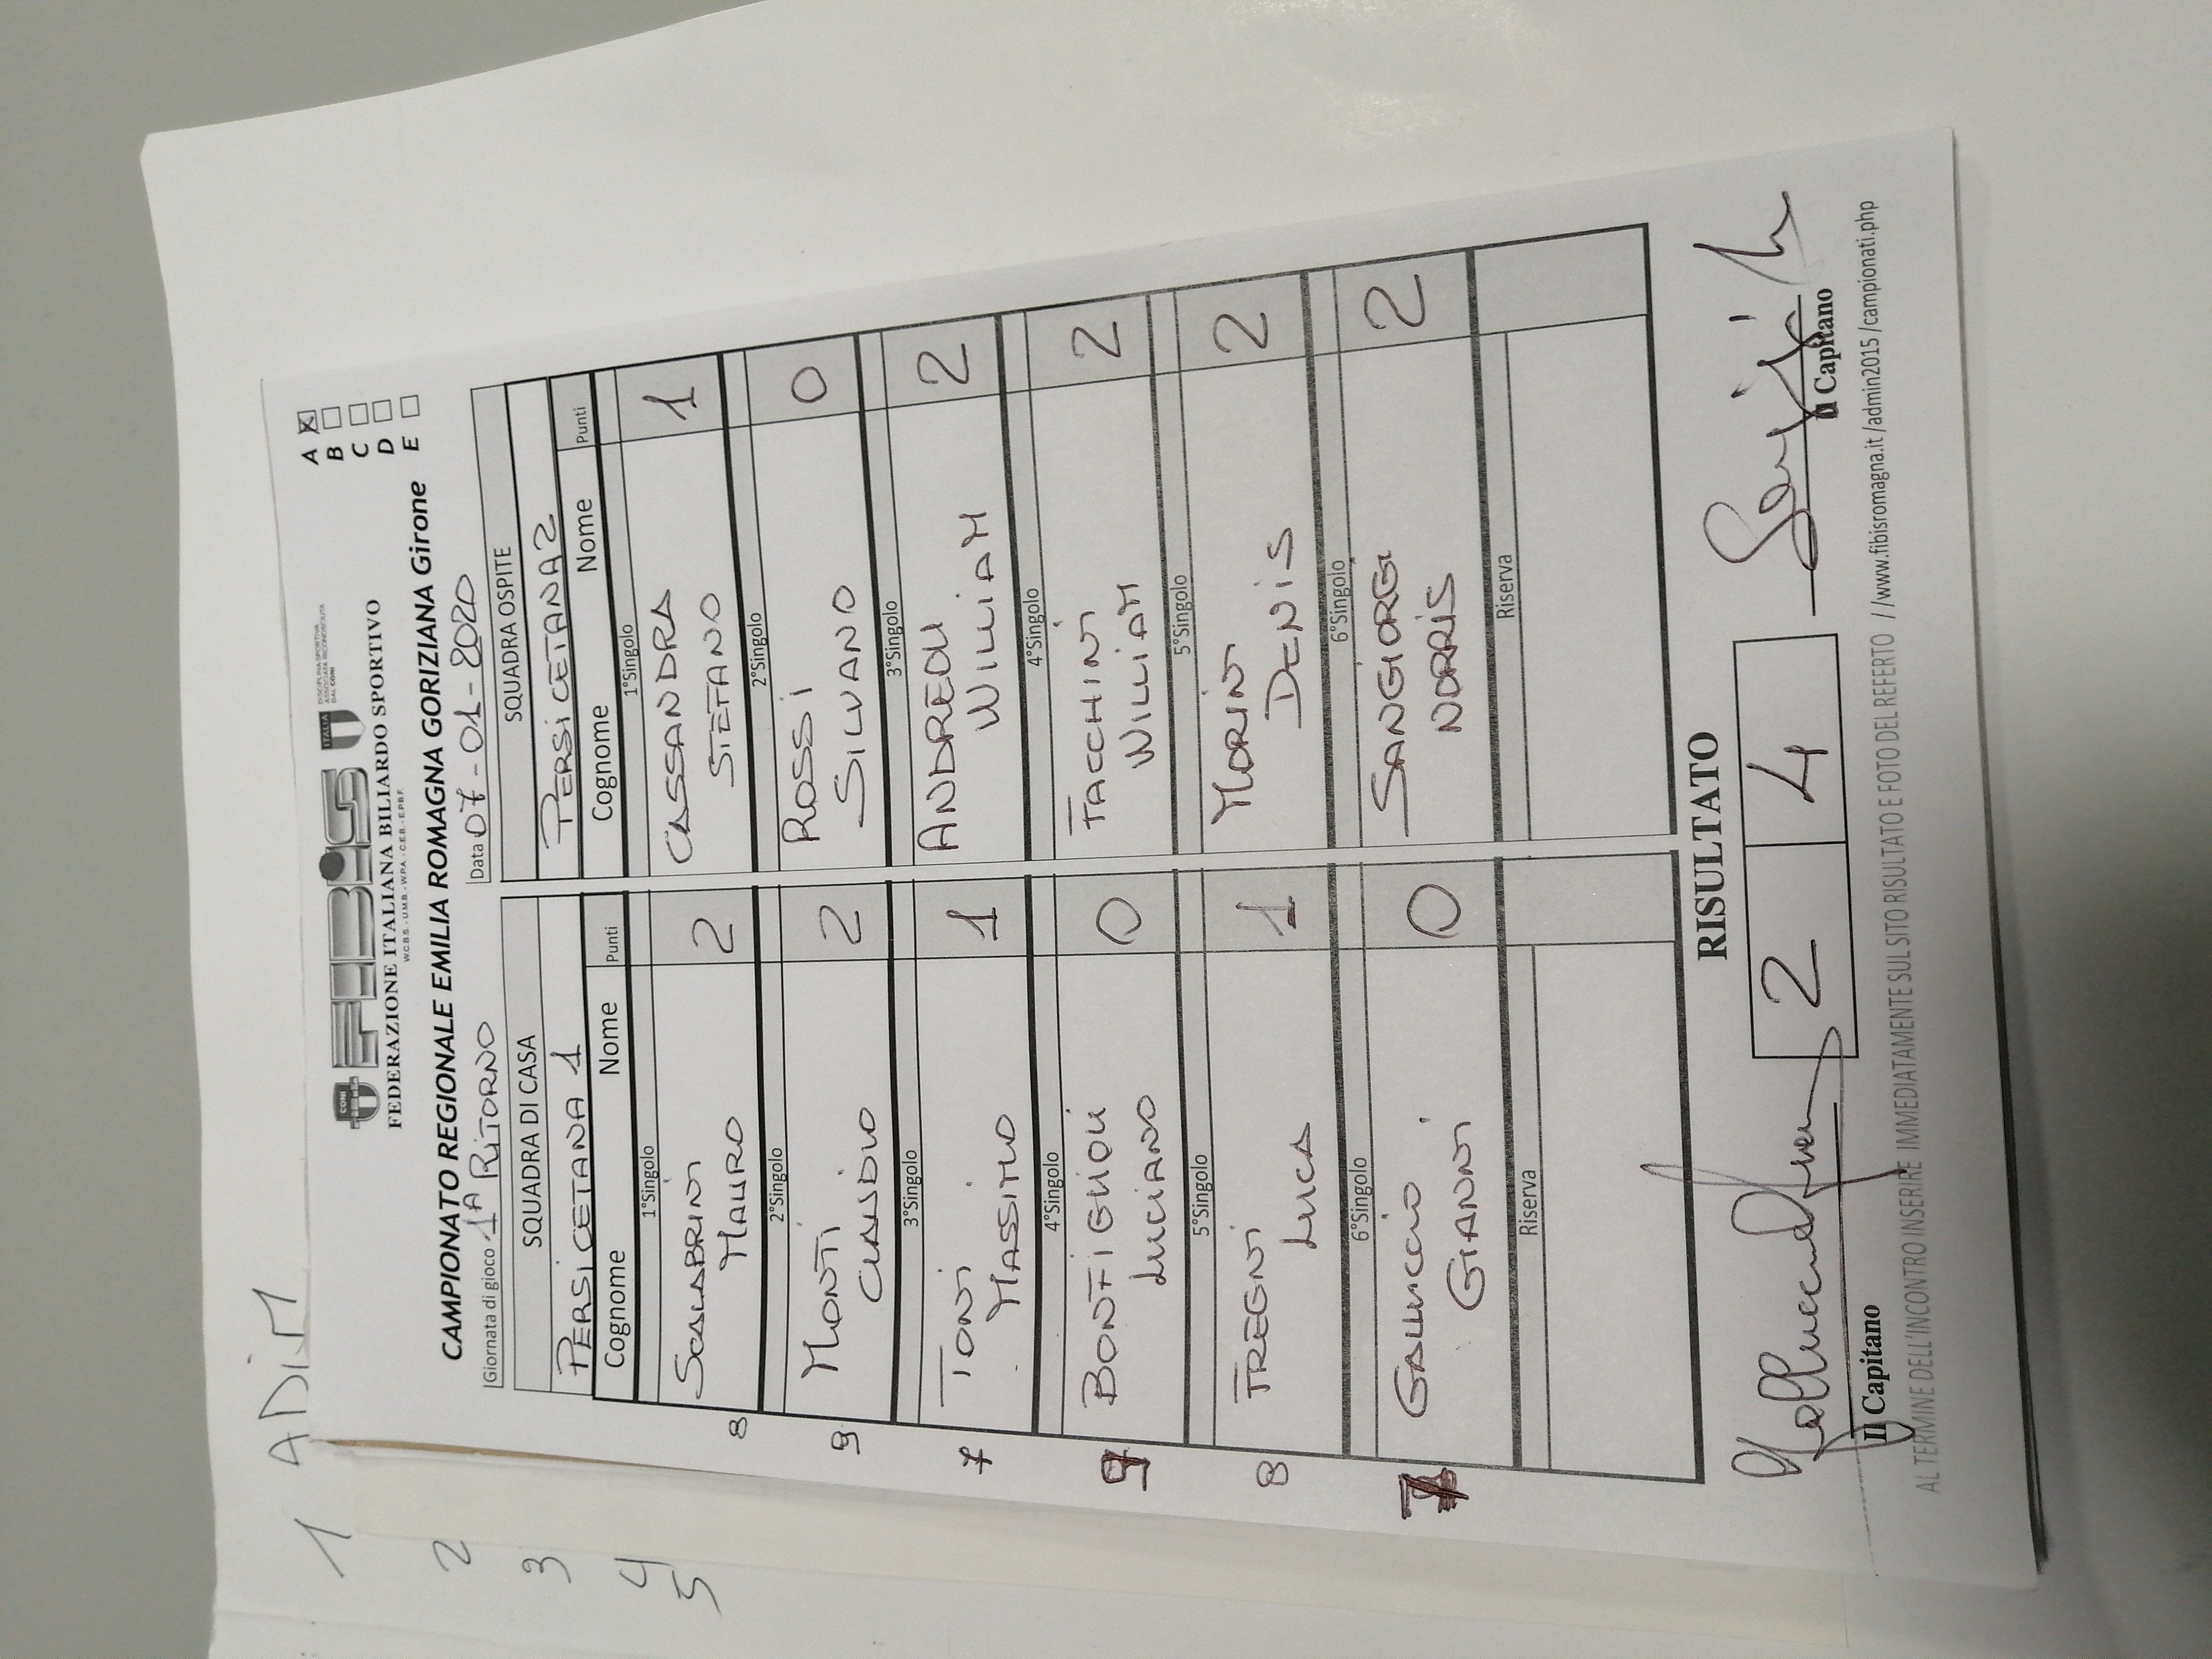 1 ADIM
2
3
4
5
CONI FIBiS ITALIA
DISCIPLINA SPORTIVA
ASSOCIATA RICONOSCIUTA
DAL CONI
FEDERAZIONE ITALIANA BILIARDO SPORTIVO
W.C.B.S. - U.M.B. - W.P.A. - C.E.B. - E.P.B.F.
CAMPIONATO REGIONALE EMILIA ROMAGNA GORIZIANA Girone
A X
B
C
D
E
Giornata di gioco 1A RITORNO Data 07-01-2020
SQUADRA DI CASA SQUADRA OSPITE
PERSICETANA 1 PERSICETANA 2
Cognome Nome Punti Cognome Nome Punti
1°Singolo 1°Singolo
8 SCALABRINI MAURO 2 CASSANDRA STEFANO 1
2°Singolo 2°Singolo
9 MONTI CLAUDIO 2 ROSSI SILVANO 0
3°Singolo 3°Singolo
7 TONI MASSIMO 1 ANDREOLI WILLIAM 2
4°Singolo 4°Singolo
9 BONFIGLIOLI LUCIANO 0 FACCHINI WILLIAM 2
5°Singolo 5°Singolo
8 FREGNI LUCA 1 MORINI DENIS 2
6°Singolo 6°Singolo
7 GALLUCCIO GIANNI 0 SANGIORGI NORRIS 2
Riserva Riserva
RISULTATO
2 4
Il Capitano Il Capitano
AL TERMINE DELL'INCONTRO INSERIRE IMMEDIATAMENTE SUL SITO RISULTATO E FOTO DEL REFERTO //www.fibisromagna.it/admin2015/campionati.php